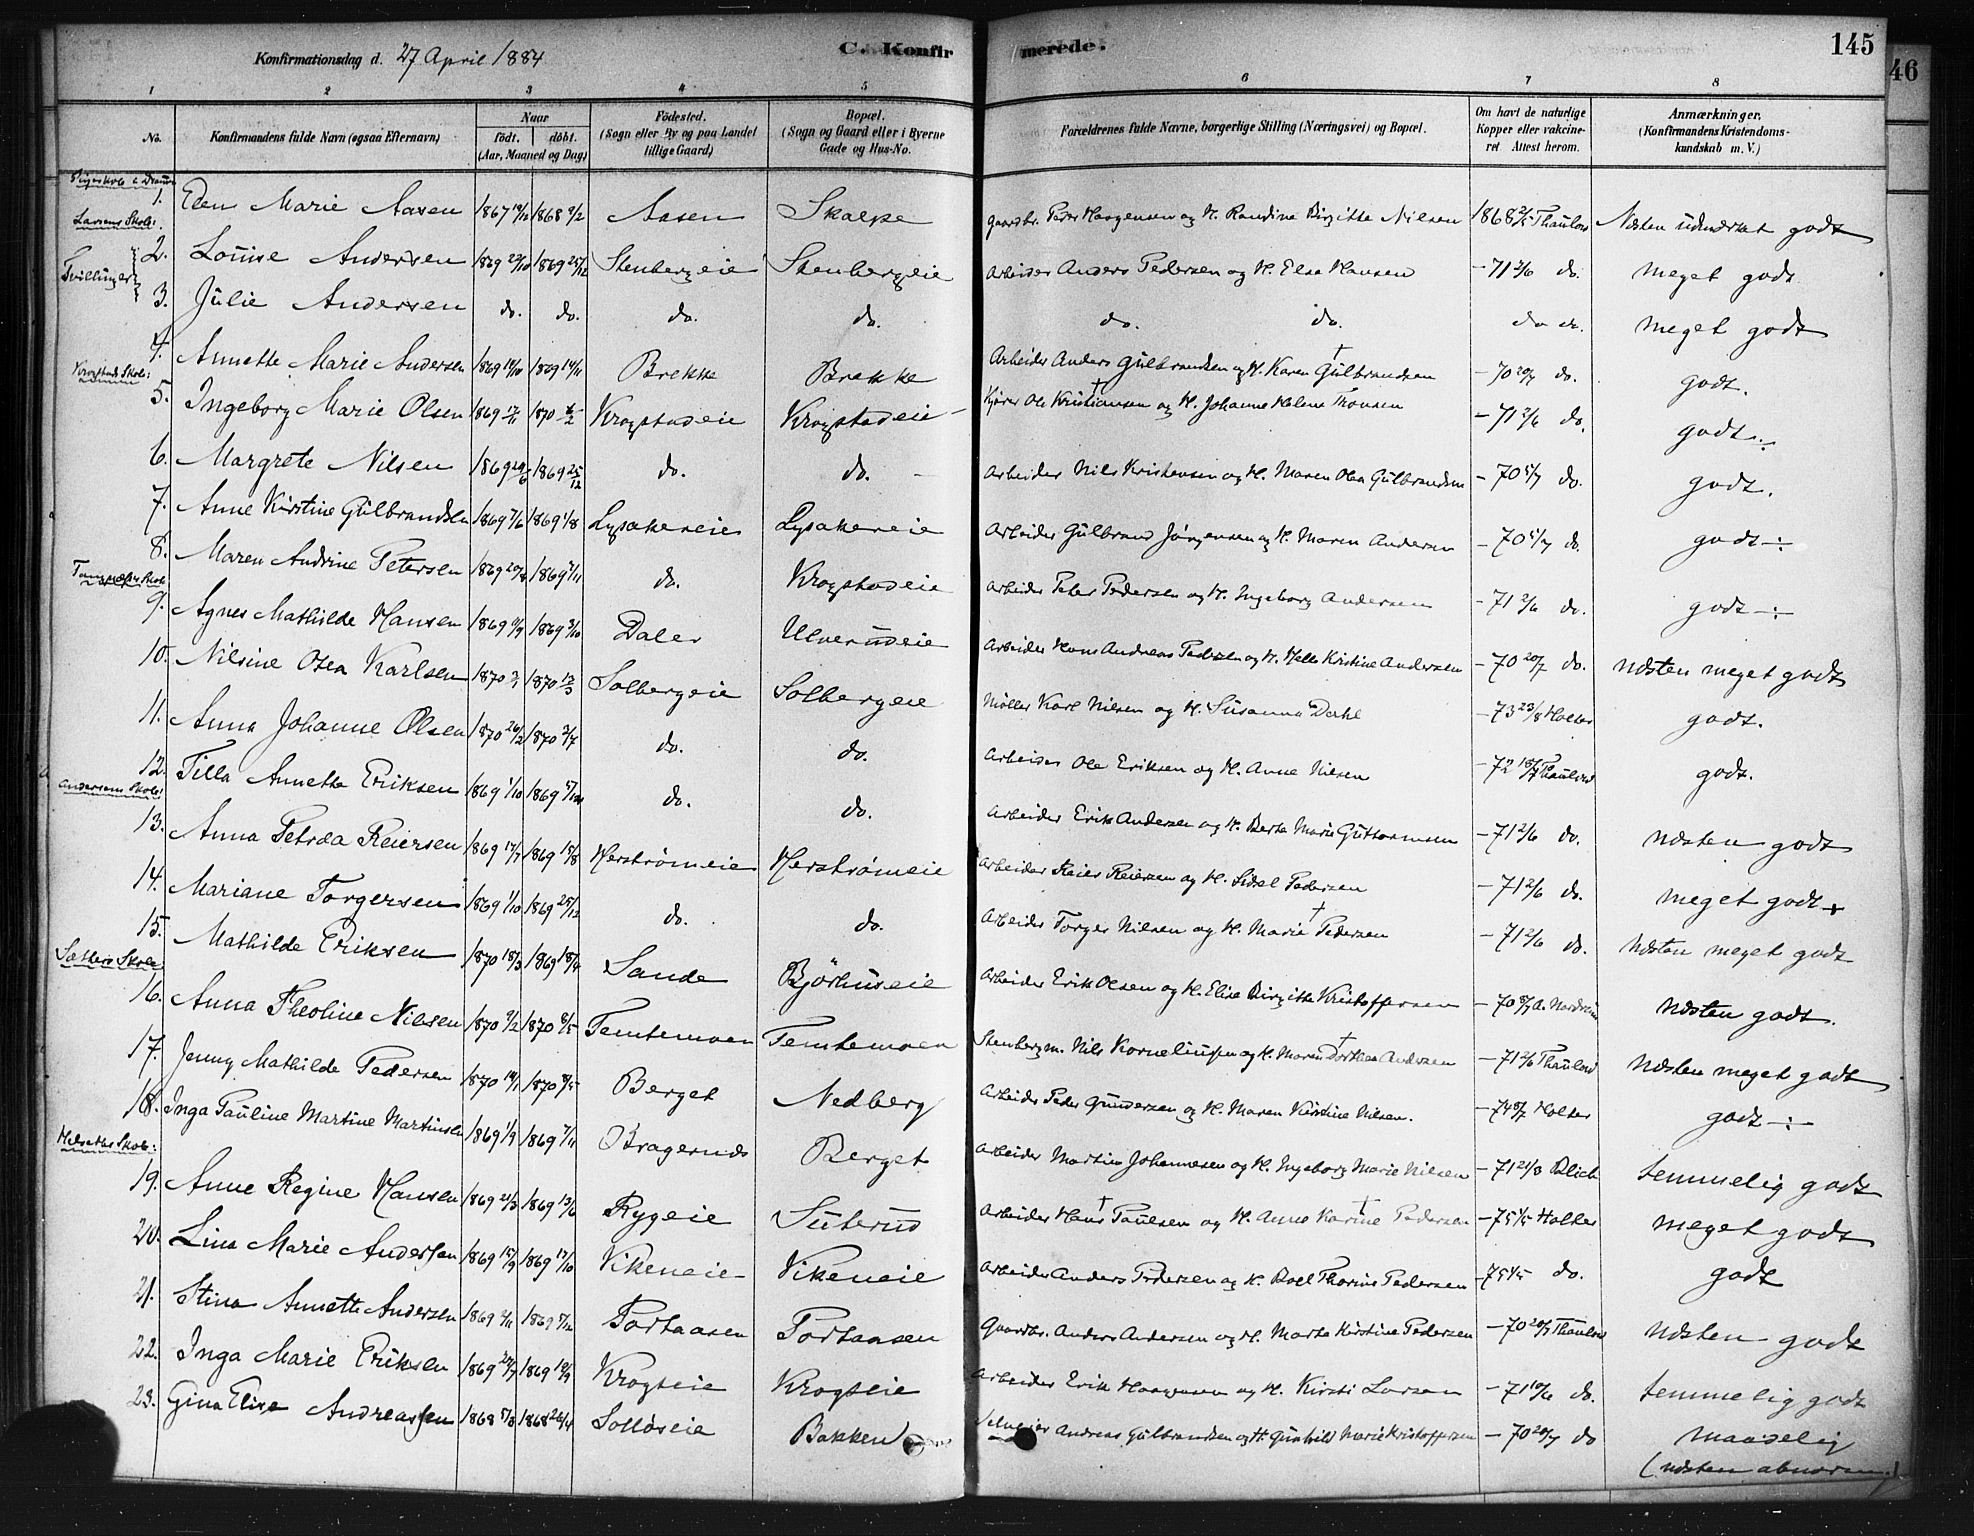 Konfirmationsdag d. 27 April 1884 C. Konfirmerede. 145
46
1 2 3 4 5 6 7 8
No. Konfirmandens fulde Navn (ogsaa Efternavn) Naar født. døbt. (Aar, Maaned og Dag) Fødested. (Sogn eller By og paa Landet tillige Gaard) Bopæl. (Sogn og Gaard eller i Byerne Gade og Hus-No. Forældrenes fulde Navne, borgerlige Stilling (Næringsvei) og Bopæl. Om havt de naturlige Kopper eller vakcineret Attest herom. Anmærkninger. (Konfirmandens Kristendomskundskab m. V.)
1. Elen Marie Aasen 1867 1868 9/2 Aasen Skalpe Gaardbr. Peder Haagensen og H. Randine Birgitte Nilsen 1868 Thaulow Næsten udmærket godt
Larsens Skole:
Tvillinger
2. Louise Andersen 1869 22/10 1869 25/12 Stenbergeie Stenbergeie Arbeider Anders Pedersen og H. Else Hansen - 71 2/6 do. meget godt
3. Julie Andersen do. do. do. do. do. do. do do. meget godt
4. Annette Marie Andersen 1869 1869 14/11 Brekke Brekke Arbeider Anders Gulbrandsen og H. Karen † Gulbrandsen - 70 20/7 do. godt.
Krogstad Skole:
5. Ingeborg Marie Olsen 1869 1870 Krogstadeie Krogstadeie Kjører Ole Kristiansen † og H. Johanne Helene Thonsen - 71 2/6 do. godt -:
6. Margrete Nilsen 1869 29/6 1869 25/12 do. do. Arbeider Nils Kristensen og H. Maren Olea Gulbrandsen - 70 5/7 do. godt.
7. Anne Kirstine Gulbrandsen 1869 7/6 1869 1/8 Lysakereie Lysakereie Arbeider Gulbrand Jørgensen og H. Maren Andersen - 70 5/7 do. godt -:
8. Maren Andrine Petersen 1869 20/8 1869 7/11 do. Krogstadeie Arbeider Peter Pedersen og H. Ingeborg Andersen - 71 2/6 do. godt -:
9. Agnes Mathilde Hansen 1869 1869 3/10 Daler Ulverudeie Arbeider Hans Andreas Pedersen og H. Helle Kristine Andersen - 70 20/7 do. næsten meget godt
10. Nilsine Osea Karlsen 1870 1870 13/3 Solbergeie Solbergeie Møller Karl Nilsen og H. Susanna Dahl - 73 23/8 Holter godt.
11. Anna Johanne Olsen 1870 26/2 1870 3/7 do. do. Arbeider Ole Eriksen og H. Anne Nilsen - 72 Thaulow godt.
12. Tilla Annette Eriksen 1869 1/10 1869 do. do. Arbeider Erik Andersen og H. Berte Marie Guttormsen - 71 2/6 do. næsten godt
Andersens Skole:
13. Anna Petrea Reiersen 1869 17/7 1869 15/8 Herstrømeie Herstrømeie Arbeider Reier Reiersen og H. Sidsel Pedersen - 71 2/6 do. meget godt +
14. Mariane Torgersen 1869 1/10 1869 25/12 do. do. Arbeider Torger Nilsen og H. Marie † Pedersen - 71 2/6 do. Næsten meget godt
15. Mathilde Eriksen 1870 18/3 1869 18/4 Sande Bjørhuseie Arbeider Erik Olsen og H. Elise Birgitte Kristoffersen - 70 næsten godt.
Sætters Skole
16. Anna Theoline Nilsen 1870 9/2 1870 8/5 Temtemoen Temtemoen Stenbergm. Nils Korneliusen og H. Maren Dorthea † Andersen - 71 2/6 Thaulow Næsten meget godt
17. Jenny Mathilde Pedersen 1870 1870 8/5 Berget Nedberg Arbeider Peder Gundersen og H. Maren Kirstine Nilsen. - 74 8/7 Holter godt -:
18. Inga Pauline Martine Martinsen 1869 1/9 1869 7/11 Bragernæs Berget Arbeider Martin Johannesen og H. Ingeborg Marie Nilsen - 71 21/8 Blich temmelig godt
19. Anne Regine Hansen 1869 21/3 1869 13/6 Rygeie Süterud Arbeider Hans † Paulsen og H. Anne Karine † Pedersen - 75 1/5 Holter meget godt
20. Lina Marie Andersen 1869 15/9 1869 17/10 Vikeneie Vikeneie Arbeider Anders Pedersen og H. Thorine Pedersen - 75 1/5 do. godt
21. Stina Annette Andersen 1869 2/11 1869 Portaasen Portaasen Gaardbr. Anders Andersen og H. Marte Kirstine Pedersen - 70 20/7 Thaulow næsten godt
22. Inga Marie Eriksen 1869 1869 Krogseie Krogseie Arbeider Erik Haagensen og H. Kirsti Larsen - 71 do. temmelig godt
23. Gina Elise Andreassen 1868 1868 26/4 Solløseie Bakken Selveier Andreas Gulbrandsen og H. Gunhild Marie Kristoffersen - 70 20/7 do maadelig
(næsten abnorm.)